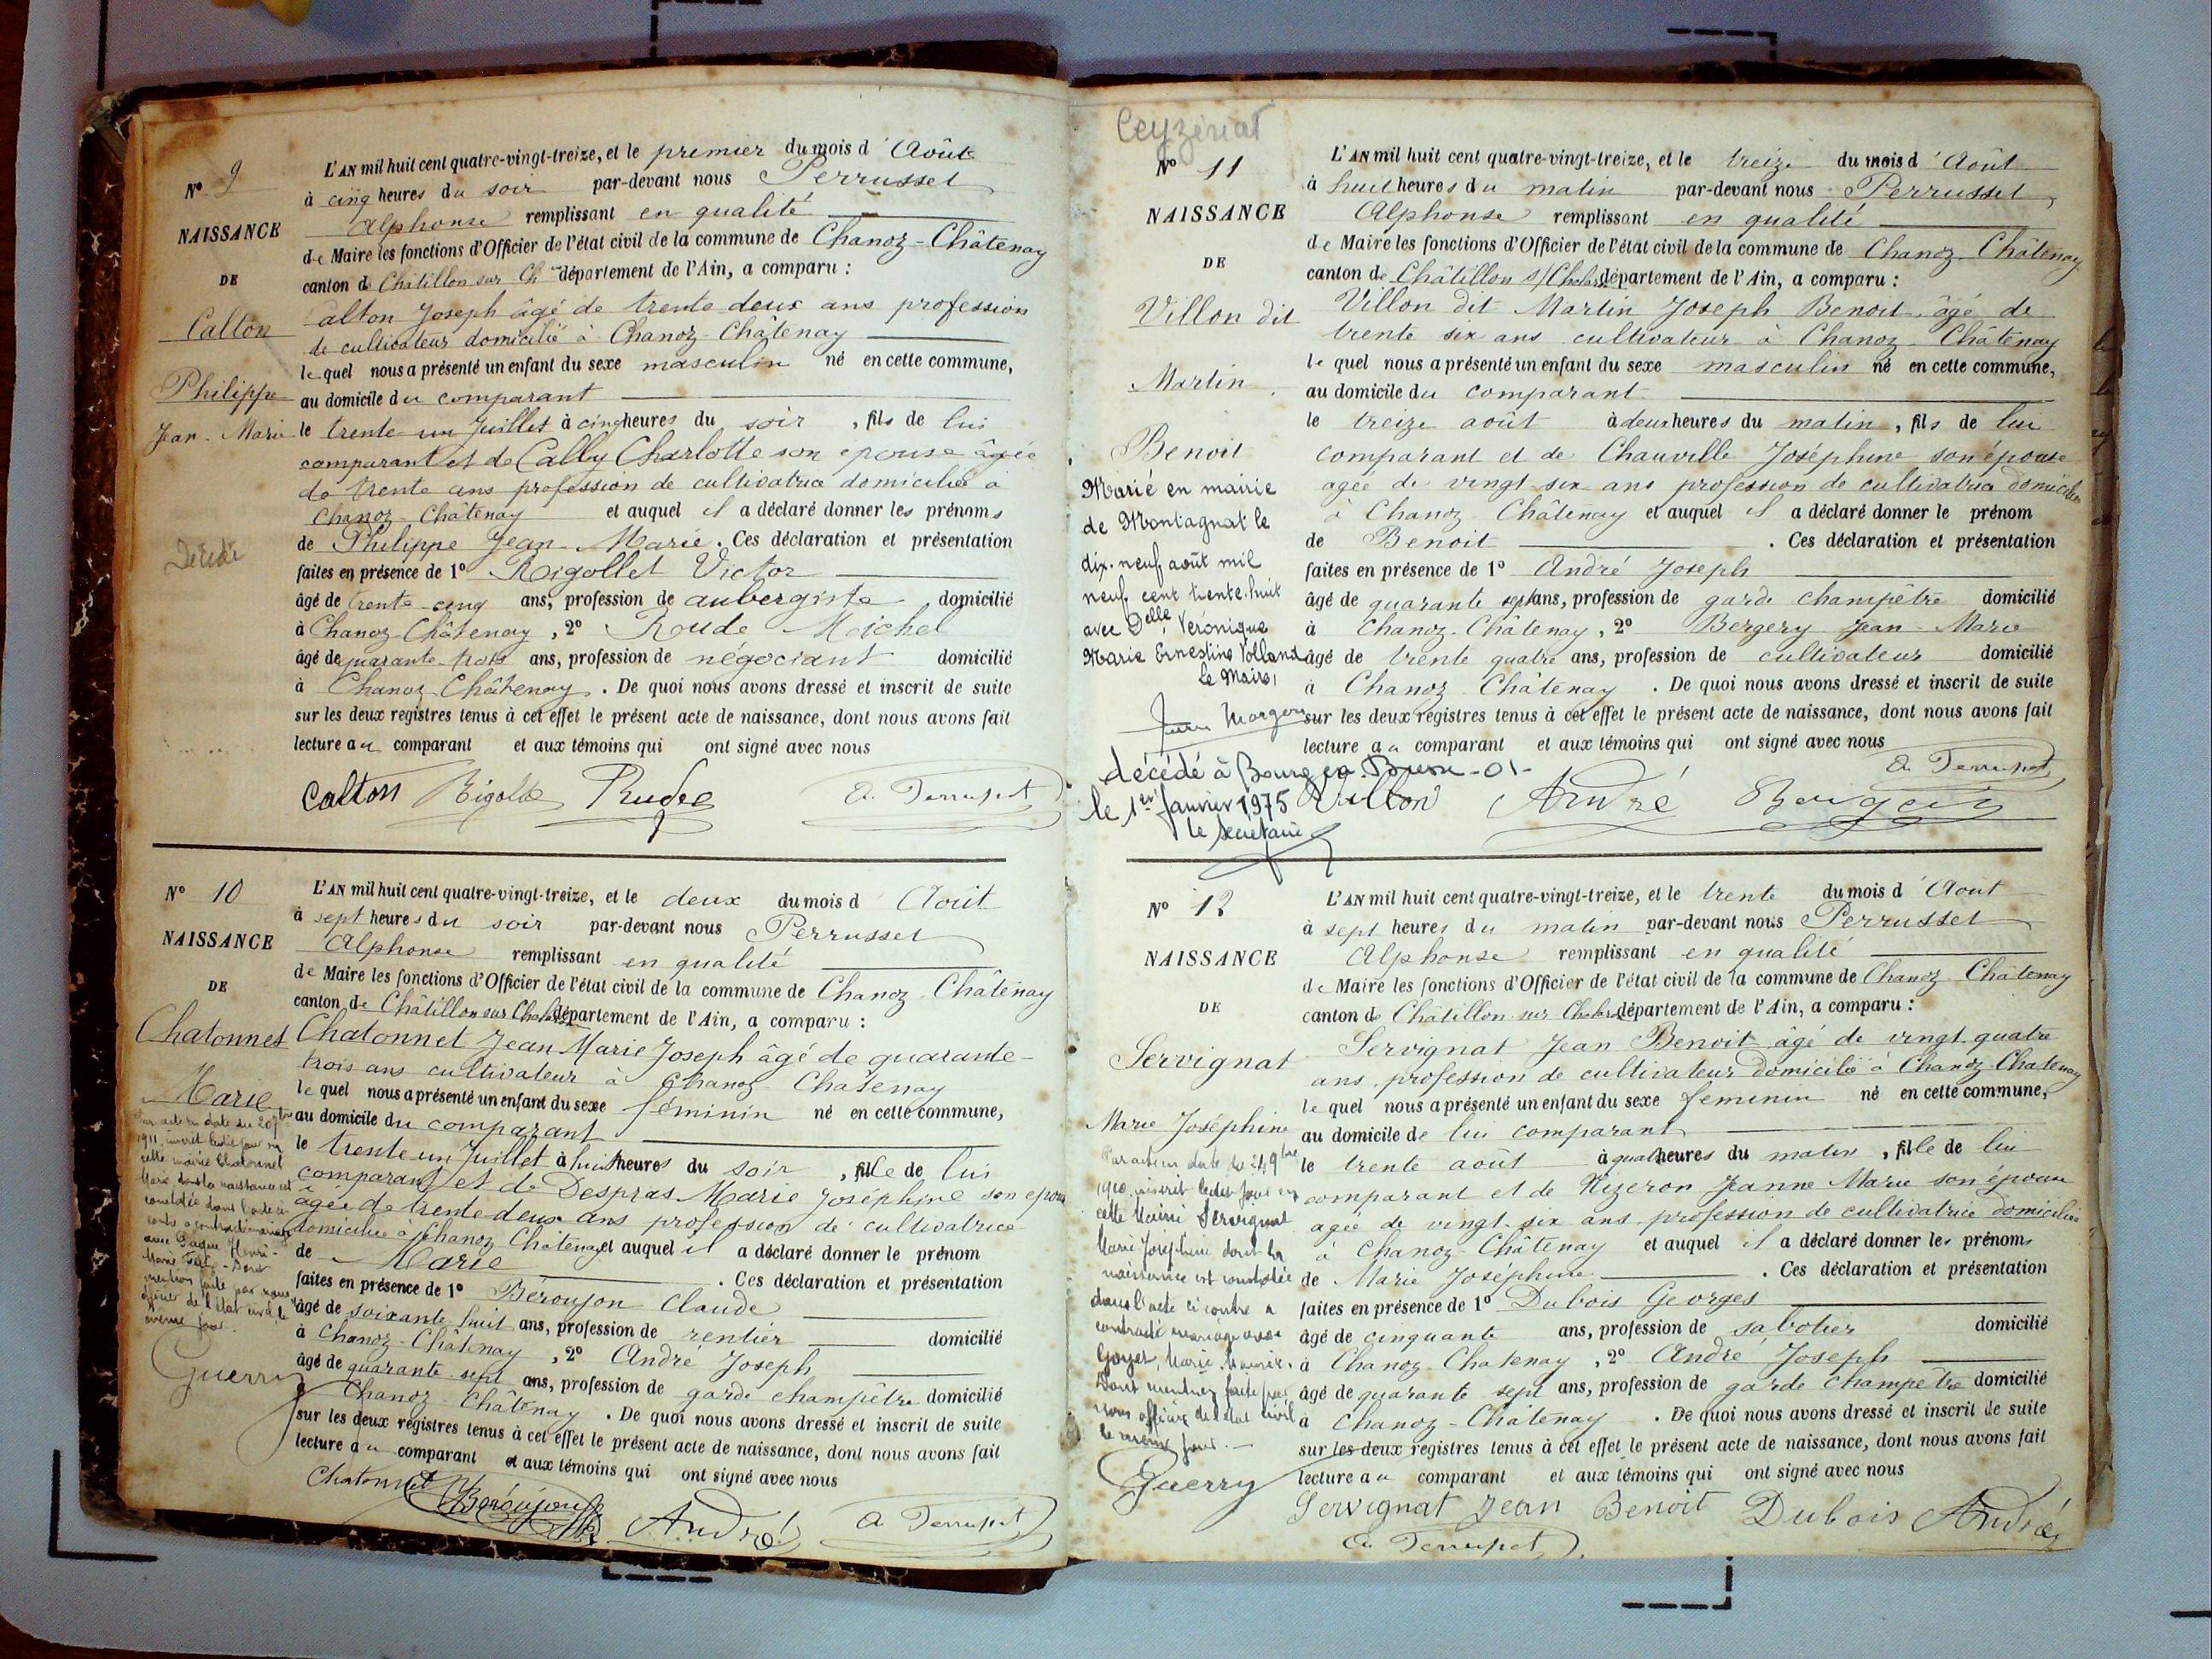 N° 9
NAISSANCE
DE
Calton
Philippe
Jean-Marie
Décédé
L'AN mil huit cent quatre-vingt-treize, et le premier du mois d'Août
à cinq heures du soir par-devant nous Perrusset
Alphonse remplissant en qualité
de Maire les fonctions d'Officier de l'état civil de la commune de Chanoz-Châtenay
canton de Châtillon sur Ch département de l'Ain, a comparu :
Calton Joseph âgé de trente deux ans profession
de cultivateur domicilié à Chanoz-Châtenay
le quel nous a présenté un enfant du sexe masculin né en cette commune,
au domicile du comparant
le trente-un Juillet à cinq heures du soir, fils de lui
comparant et de Cally Charlotte son épouse âgée
de trente ans profession de cultivatrice domiciliée à
Chanoz-Châtenay et auquel il a déclaré donner les prénoms
de Philippe Jean-Marie. Ces déclaration et présentation
faites en présence de 1° Rigollet Victor
âgé de trente-cinq ans, profession de aubergiste domicilié
à Chanoz-Châtenay, 2° Roude Michel
âgé de quarante-trois ans, profession de négociant domicilié
à Chanoz-Châtenay. De quoi nous avons dressé et inscrit de suite
sur les deux registres tenus à cet effet le présent acte de naissance, dont nous avons fait
lecture au comparant et aux témoins qui ont signé avec nous
Calton Rigollet Rude A. Perrusset
N° 10
NAISSANCE
DE
Chatonnet
Marie
Par acte en date du 20
1911, inscrit ledit jour en
cette mairie Chatonnet
Marie dont la naissance est
constatée dans l'acte ci
contre a contracté mariage
avec Paque Henri-
Marie Félix - Dont
mention faite par nous
officier de l'état civil le
même jour.
Guerry
L'AN mil huit cent quatre-vingt-treize, et le deux du mois d'Août
à sept heures du soir par-devant nous Perrusset
Alphonse remplissant en qualité
de Maire les fonctions d'Officier de l'état civil de la commune de Chanoz-Châtenay
canton de Châtillon sur Chalar département de l'Ain, a comparu :
Chatonnet Jean Marie Joseph âgé de quarante-
trois ans cultivateur à Chanoz-Châtenay
le quel nous a présenté un enfant du sexe féminin né en cette commune,
au domicile du comparant
le trente un Juillet à huit heures du soir, fille de lui
comparant et de Despras Marie Joséphine son épouse
âgée de trente-deux ans profession de cultivatrice
domiciliée à Chanoz Châtenay et auquel il a déclaré donner le prénom
de Marie. Ces déclaration et présentation
faites en présence de 1° Béroujon Claude
âgé de soixante huit ans, profession de rentier domicilié
à Chanoz-Châtenay, 2° André Joseph
âgé de quarante-sept ans, profession de garde champêtre domicilié
à Chanoz-Châtenay. De quoi nous avons dressé et inscrit de suite
sur les deux registres tenus à cet effet le présent acte de naissance, dont nous avons fait
lecture au comparant et aux témoins qui ont signé avec nous
Chatonnet Béroujon André A. Perrusset
Ceyzériat
N° 11
NAISSANCE
DE
Villon dit
Martin
Benoit
Marié en mairie
de Montagnat le
dix-neuf août mil
neuf cent trente-huit
avec Delle Véronique
Marie Ernestine Volland
Le Maire,
décédé à Bourg en Bresse -01-
le 1er Janvier 1975
le secrétaire
L'AN mil huit cent quatre-vingt-treize, et le treize du mois d'Août
à huit heures du matin par-devant nous Perrusset
Alphonse remplissant en qualité
de Maire les fonctions d'Officier de l'état civil de la commune de Chanoz-Châtenay
canton de Châtillon s/Chalar département de l'Ain, a comparu :
Villon dit Martin Joseph Benoit, âgé de
trente six ans cultivateur à Chanoz-Châtenay
le quel nous a présenté un enfant du sexe masculin né en cette commune,
au domicile du comparant
le treize août à deux heures du matin, fils de lui
comparant et de Chauville Joséphine son épouse
agée de vingt-six ans profession de cultivatrice domiciliée
à Chanoz-Châtenay et auquel il a déclaré donner le prénom
de Benoit. Ces déclaration et présentation
faites en présence de 1° André Joseph
âgé de quarante sept ans, profession de garde champêtre domicilié
à Chanoz-Châtenay, 2° Bergery Jean-Marie
âgé de trente quatre ans, profession de cultivateur domicilié
à Chanoz-Châtenay. De quoi nous avons dressé et inscrit de suite
sur les deux registres tenus à cet effet le présent acte de naissance, dont nous avons fait
lecture au comparant et aux témoins qui ont signé avec nous
A. Perrusset
Villon André Bergery
N° 12
NAISSANCE
DE
Servignat
Marie Joséphine
Par acte en date du 24 9bre
1910, inscrit ledit jour en
cette Mairie Servignat
Marie Joséphine dont la
naissance est constatée
dans l'acte ci contre a
contracté mariage avec
Goyet, Marie
Dont mention faite par
nous officier de l'état civil
le même jour.
Guerry
L'AN mil huit cent quatre-vingt-treize, et le trente du mois d'Août
à sept heures du matin par-devant nous Perrusset
Alphonse remplissant en qualité
de Maire les fonctions d'Officier de l'état civil de la commune de Chanoz-Châtenay
canton de Châtillon sur Chalar département de l'Ain, a comparu :
Servignat Jean Benoit âgé de vingt quatre
ans, profession de cultivateur domicilié à Chanoz-Chatenay
le quel nous a présenté un enfant du sexe feminin né en cette commune,
au domicile de lui comparant
le trente août à quatre heures du matin, fille de lui
comparant et de Nizeron Jeanne Marie son épouse
agée de vingt-six ans profession de cultivatrice domiciliée
à Chanoz-Châtenay et auquel il a déclaré donner les prénoms
de Marie Joséphine. Ces déclaration et présentation
faites en présence de 1° Dubois Georges
âgé de cinquante ans, profession de sabotier domicilié
à Chanoz-Chatenay, 2° André Joseph
âgé de quarante sept ans, profession de garde champêtre domicilié
à Chanoz-Châtenay. De quoi nous avons dressé et inscrit de suite
sur les deux registres tenus à cet effet le présent acte de naissance, dont nous avons fait
lecture au comparant et aux témoins qui ont signé avec nous
Servignat Jean Benoit Dubois André
A. Perrusset